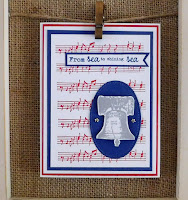 From sea to shining sea